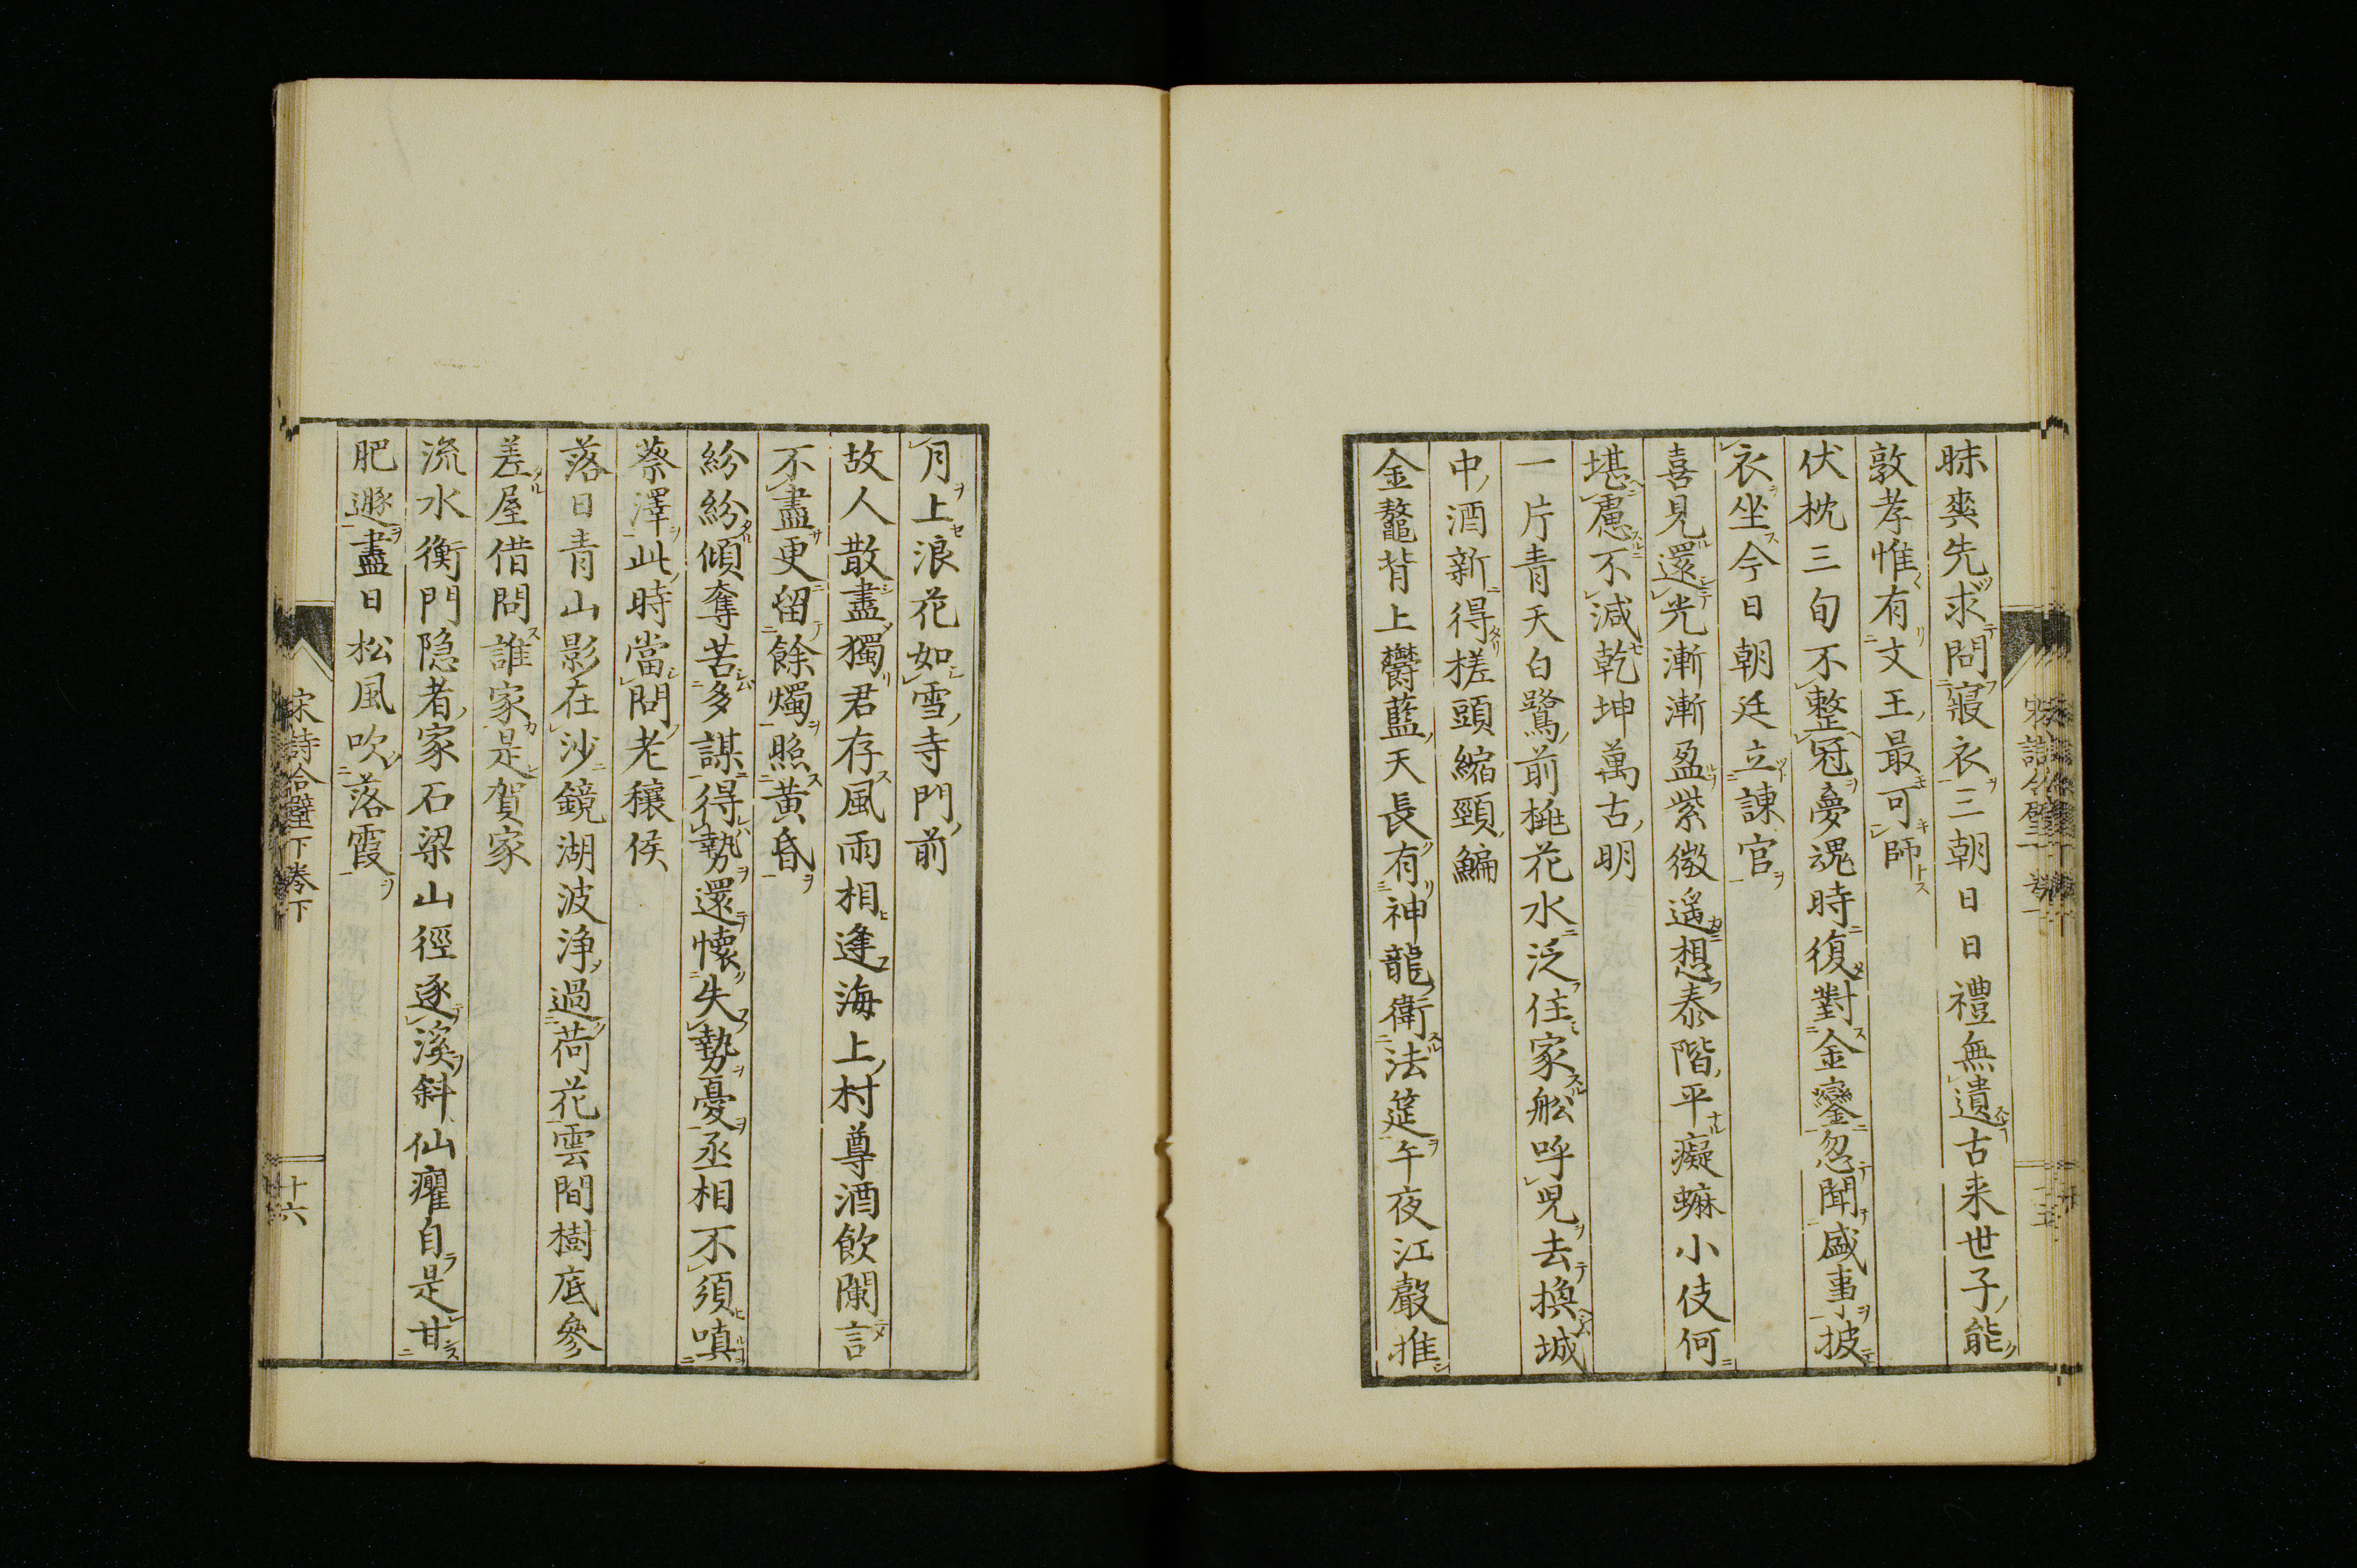 昧爽先求問寢衣三朝日日禮無遺古来世子能
敦孝惟有文王最可師
伏枕三旬不整冠夢魂時復對金鑾忽聞盛事披
衣坐今日朝廷立諫官
喜見還光漸漸盈紫微遥想泰階平癡蟆小伎何
堪慮不減乾坤萬古明
一片青天白鷺前桃花水泛住家舩呼児去換城
中酒新得槎頭縮頸鯿
金鼇背上欝藍天長有神龍衛法筵午夜江聲推
月上浪花如雪寺門前
故人散盡獨君存風雨相逢海上村尊酒飲闌言
不盡更留餘燭照黄昏
紛紛傾奪苦多謀得勢還懐失勢憂丞相不須嗔
蔡澤此時當問老穰侯
落日青山影在沙鏡湖波浄過荷花雲間樹底參
差屋借問誰家是賀家
流水衡門隠者家石梁山徑逐溪斜仙癯自是甘
肥遯盡日松風吹落霞
宋詩合璧下巻下
十六